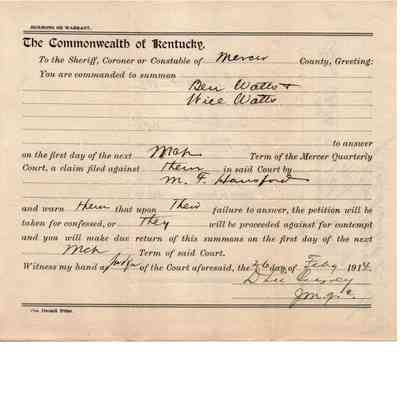 SUMMONS OR WARRANT.
The Commonwealth of Kentucky,
To the Sheriff, Coroner or Constable of Mercer County, Greeting:
You are commanded to summon
Ben Watts &
Will Watts
to answer
on the first day of the next Mch Term of the Mercer Quarterly
Court, a claim filed against them in said Court by
M. F. Hansford
and warn them that upon Their failure to answer, the petition will be
taken for confessed, or They will be proceeded against for contempt
and you will make due return of this summons on the first day of the next
Mch Term of said Court.
Witness my hand as Judge of the Court aforesaid, the 26 day of Feby 1914.